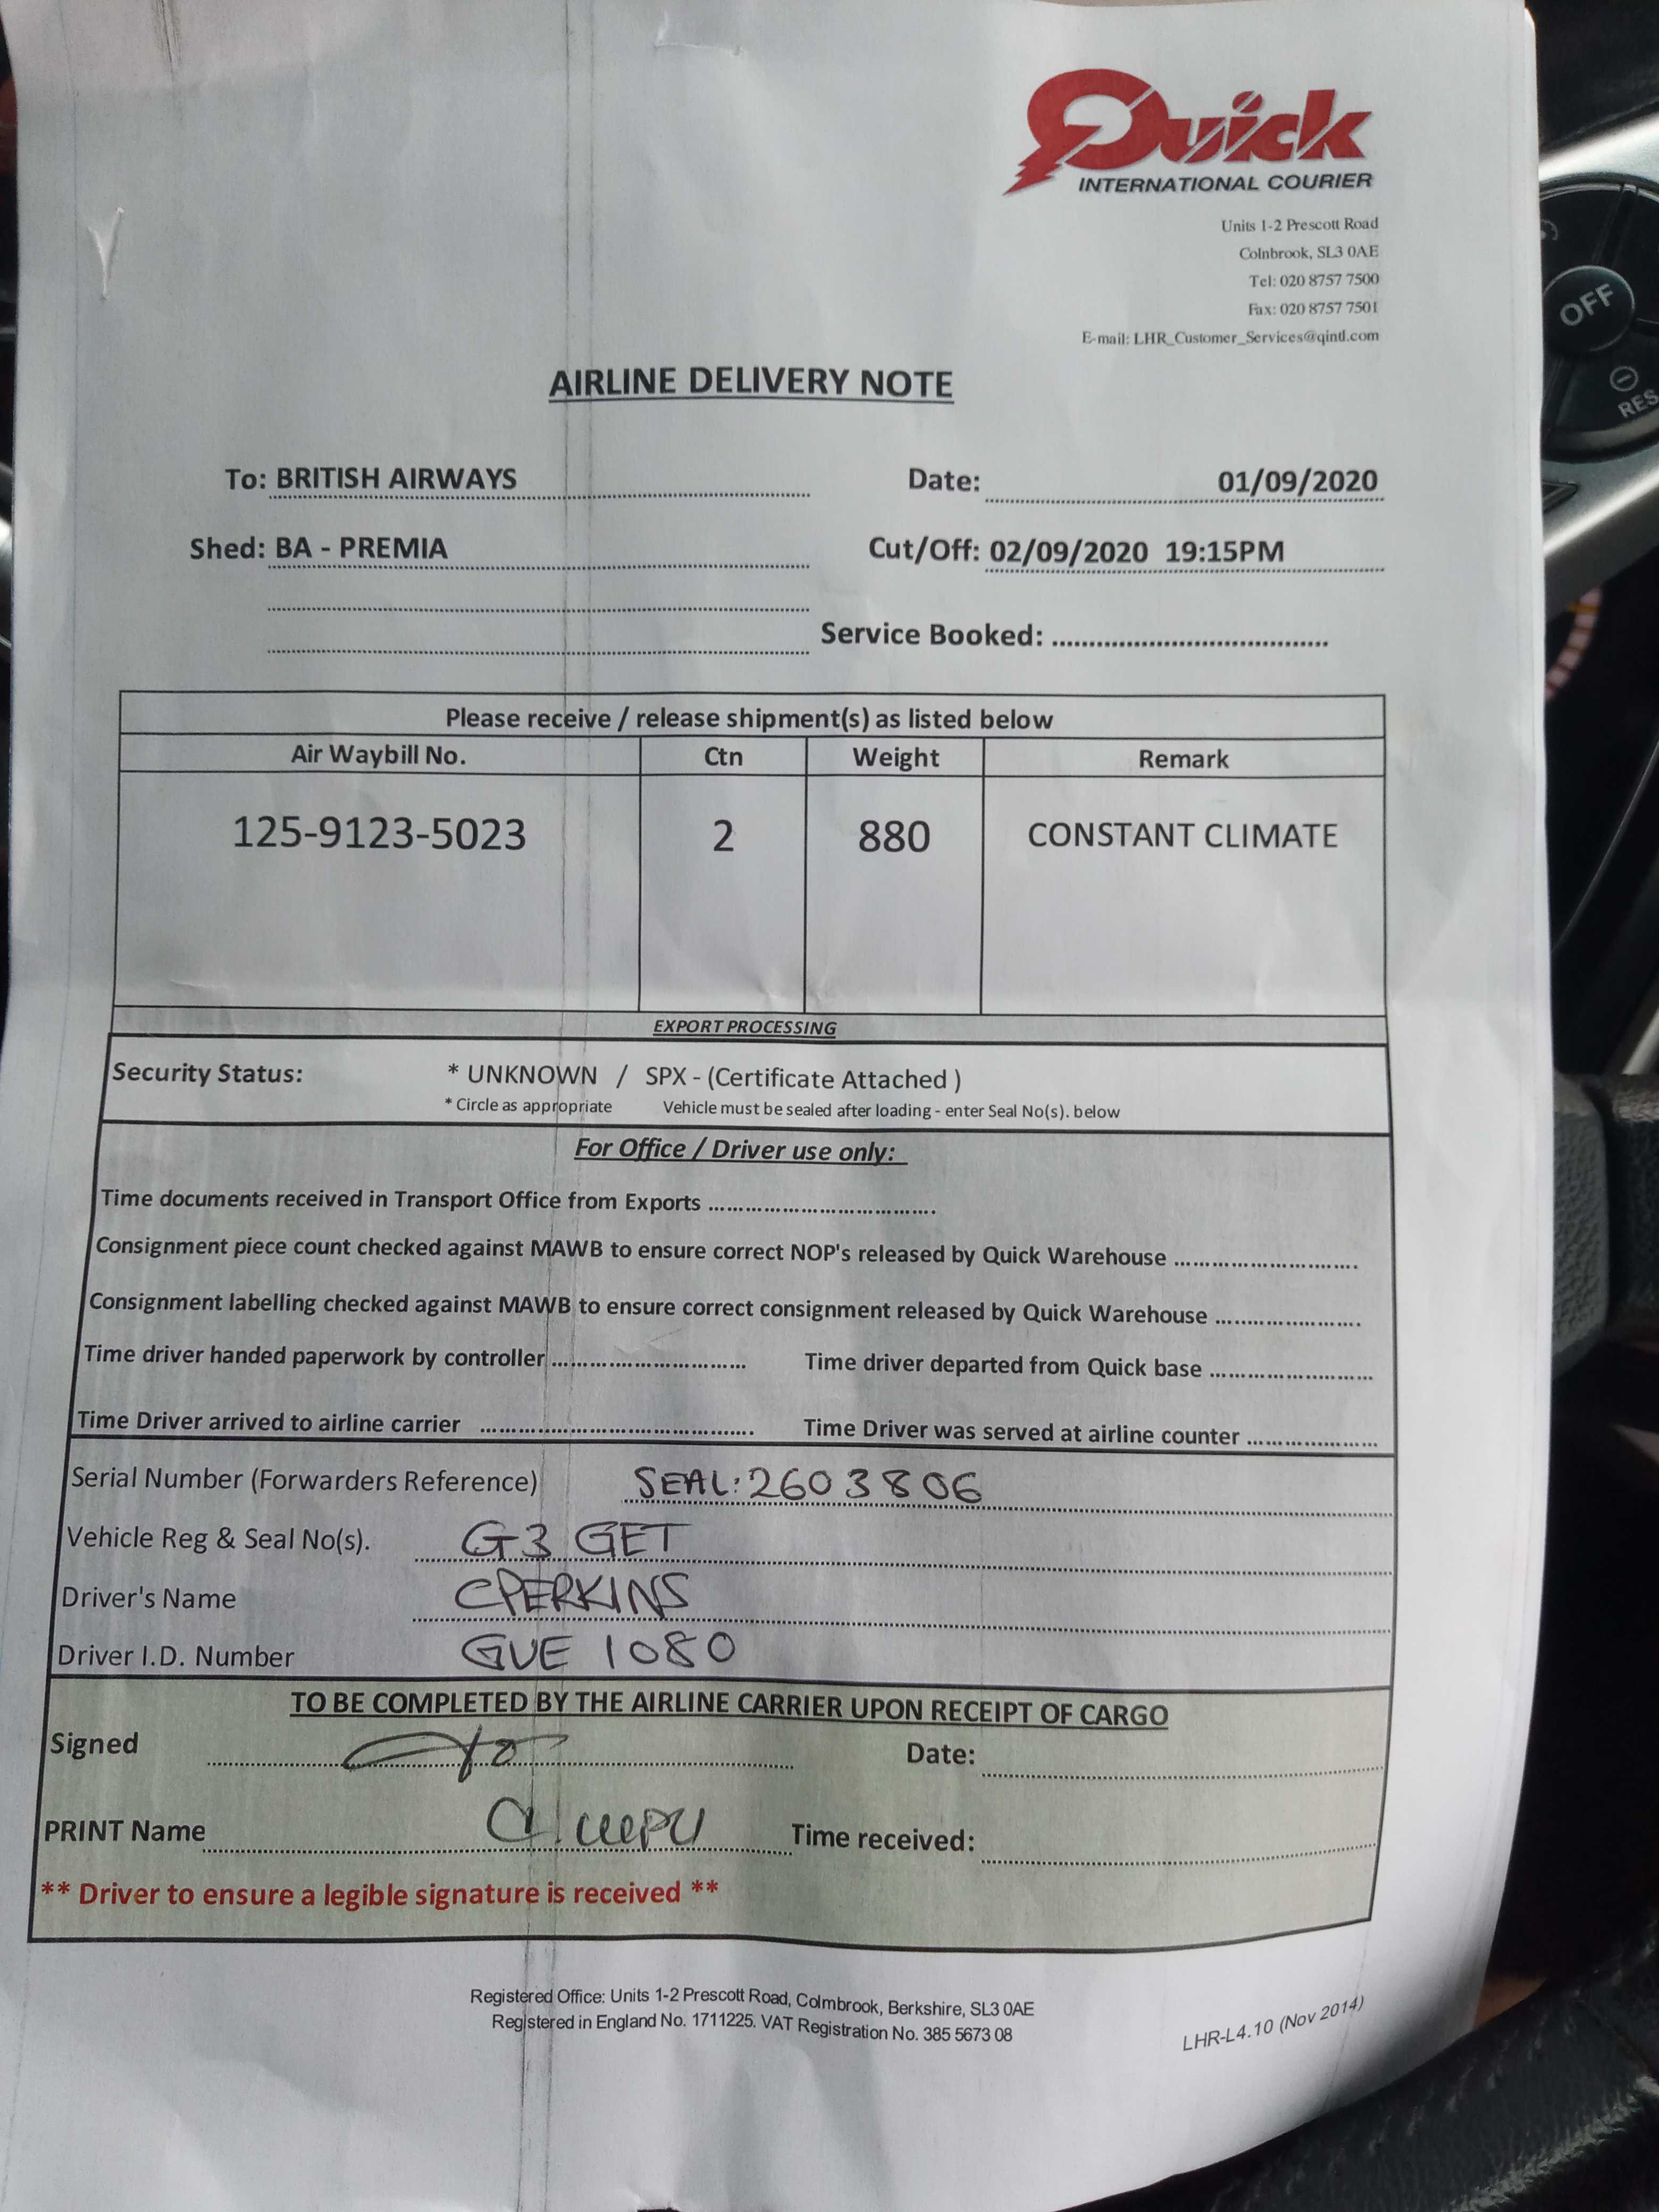 Quick
INTERNATIONAL COURIER
Units 1-2 Prescott Road
Colnbrook, SL3 0AE
Tel: 020 8757 7500
Fax: 020 8757 7501
E-mail: LHR_Customer_Services@qintl.com
OFF
RES
AIRLINE DELIVERY NOTE
To: BRITISH AIRWAYS Date: 01/09/2020
Shed: BA - PREMIA Cut/Off: 02/09/2020 19:15PM
Service Booked:
Please receive / release shipment(s) as listed below
Air Waybill No. Ctn Weight Remark
125-9123-5023 2 880 CONSTANT CLIMATE
EXPORT PROCESSING
Security Status: * UNKNOWN / SPX - (Certificate Attached )
* Circle as appropriate Vehicle must be sealed after loading - enter Seal No(s). below
For Office / Driver use only:
Time documents received in Transport Office from Exports
Consignment piece count checked against MAWB to ensure correct NOP's released by Quick Warehouse
Consignment labelling checked against MAWB to ensure correct consignment released by Quick Warehouse
Time driver handed paperwork by controller Time driver departed from Quick base
Time Driver arrived to airline carrier Time Driver was served at airline counter
Serial Number (Forwarders Reference) SEAL: 2603806
Vehicle Reg & Seal No(s). G3 GET
Driver's Name CPERKINS
Driver I.D. Number GUE 1080
TO BE COMPLETED BY THE AIRLINE CARRIER UPON RECEIPT OF CARGO
Signed Date:
PRINT Name Time received:
** Driver to ensure a legible signature is received **
Registered Office: Units 1-2 Prescott Road, Colmbrook, Berkshire, SL3 0AE
Registered in England No. 1711225. VAT Registration No. 385 5673 08
LHR-L4.10 (Nov 2014)